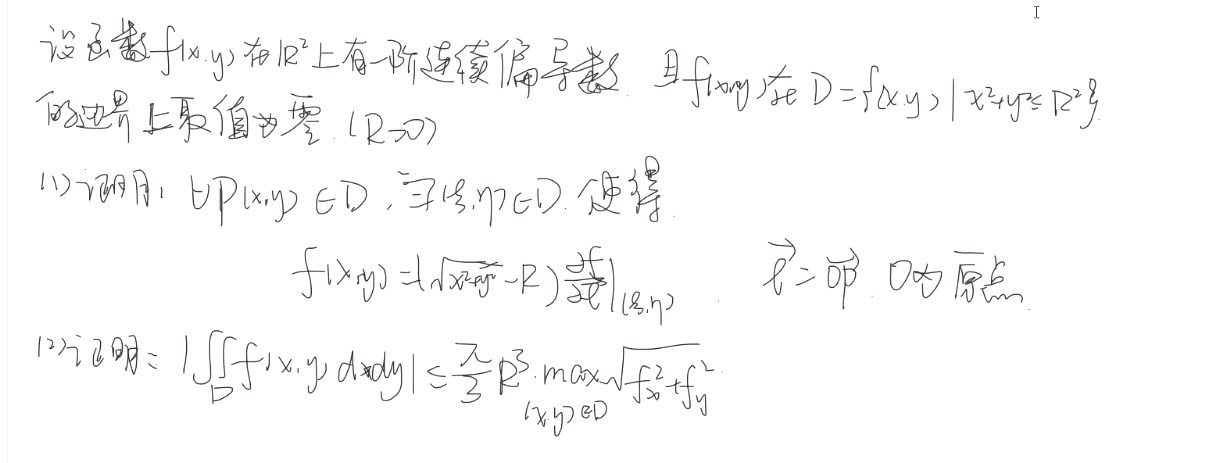 设函数f(x,y)在R²上有一阶连续偏导数. 且f(x,y)在D={(x,y)|x²+y²≤R²}
的边界上取值为零.(R>0)
(1)证明: ∀P(x,y)∈D, ∃(ξ,η)∈D. 使得
f(x,y)=(√(x²+y²)-R)∂f/∂l|(ξ,η). l⃗=OP⃗. O为原点
(2)证明: |∬_D f(x,y)dxdy|≤π/3 R³·max_{(x,y)∈D}√(f_x²+f_y²)